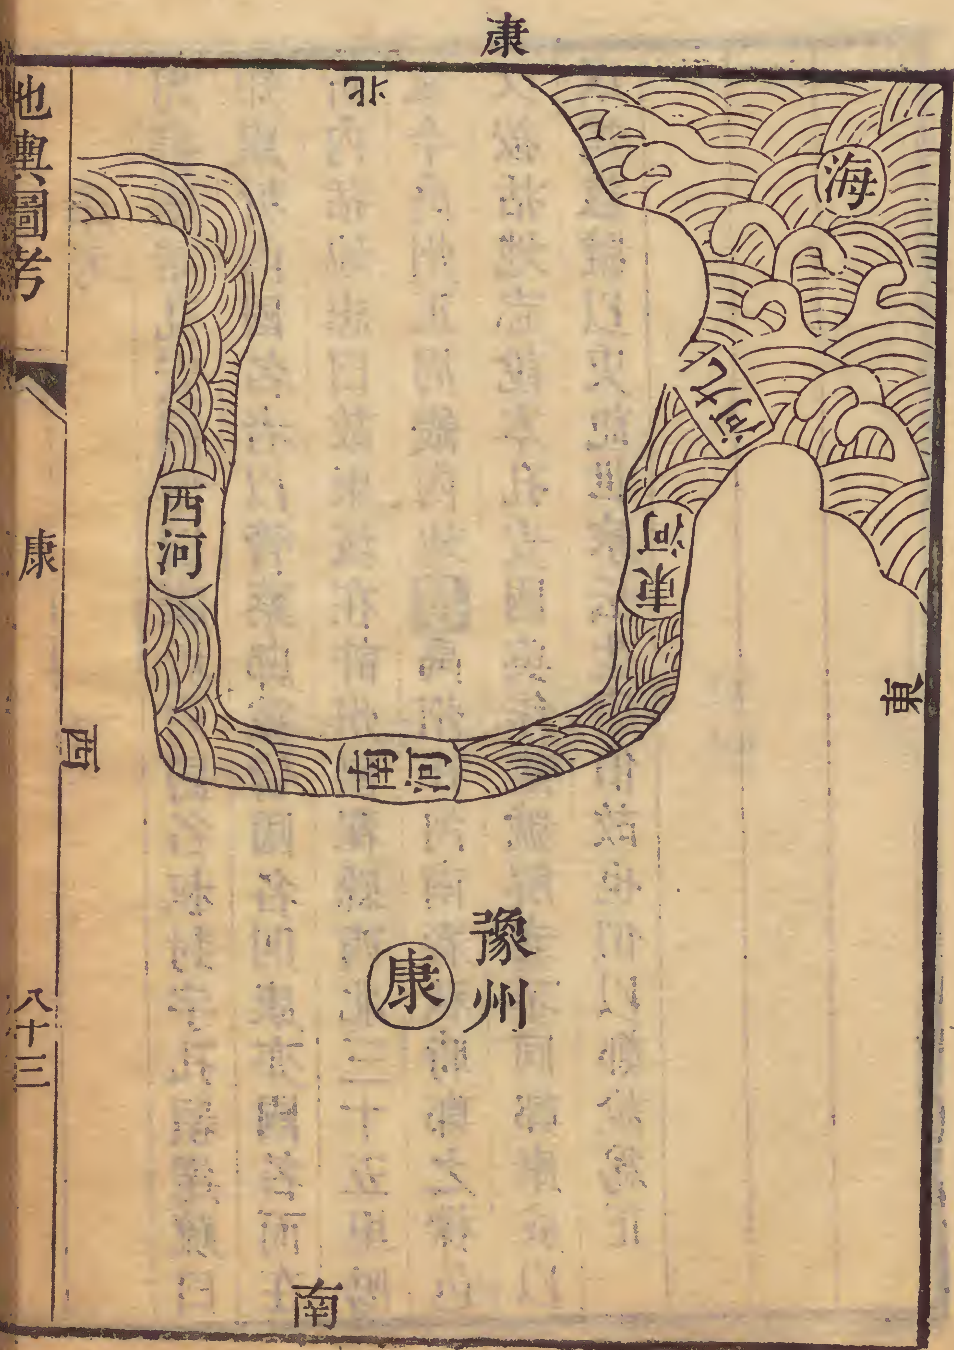 康
北
海
九河
西河
東河
東
西
南河
豫州
康
南
地輿圖考
康
八十三